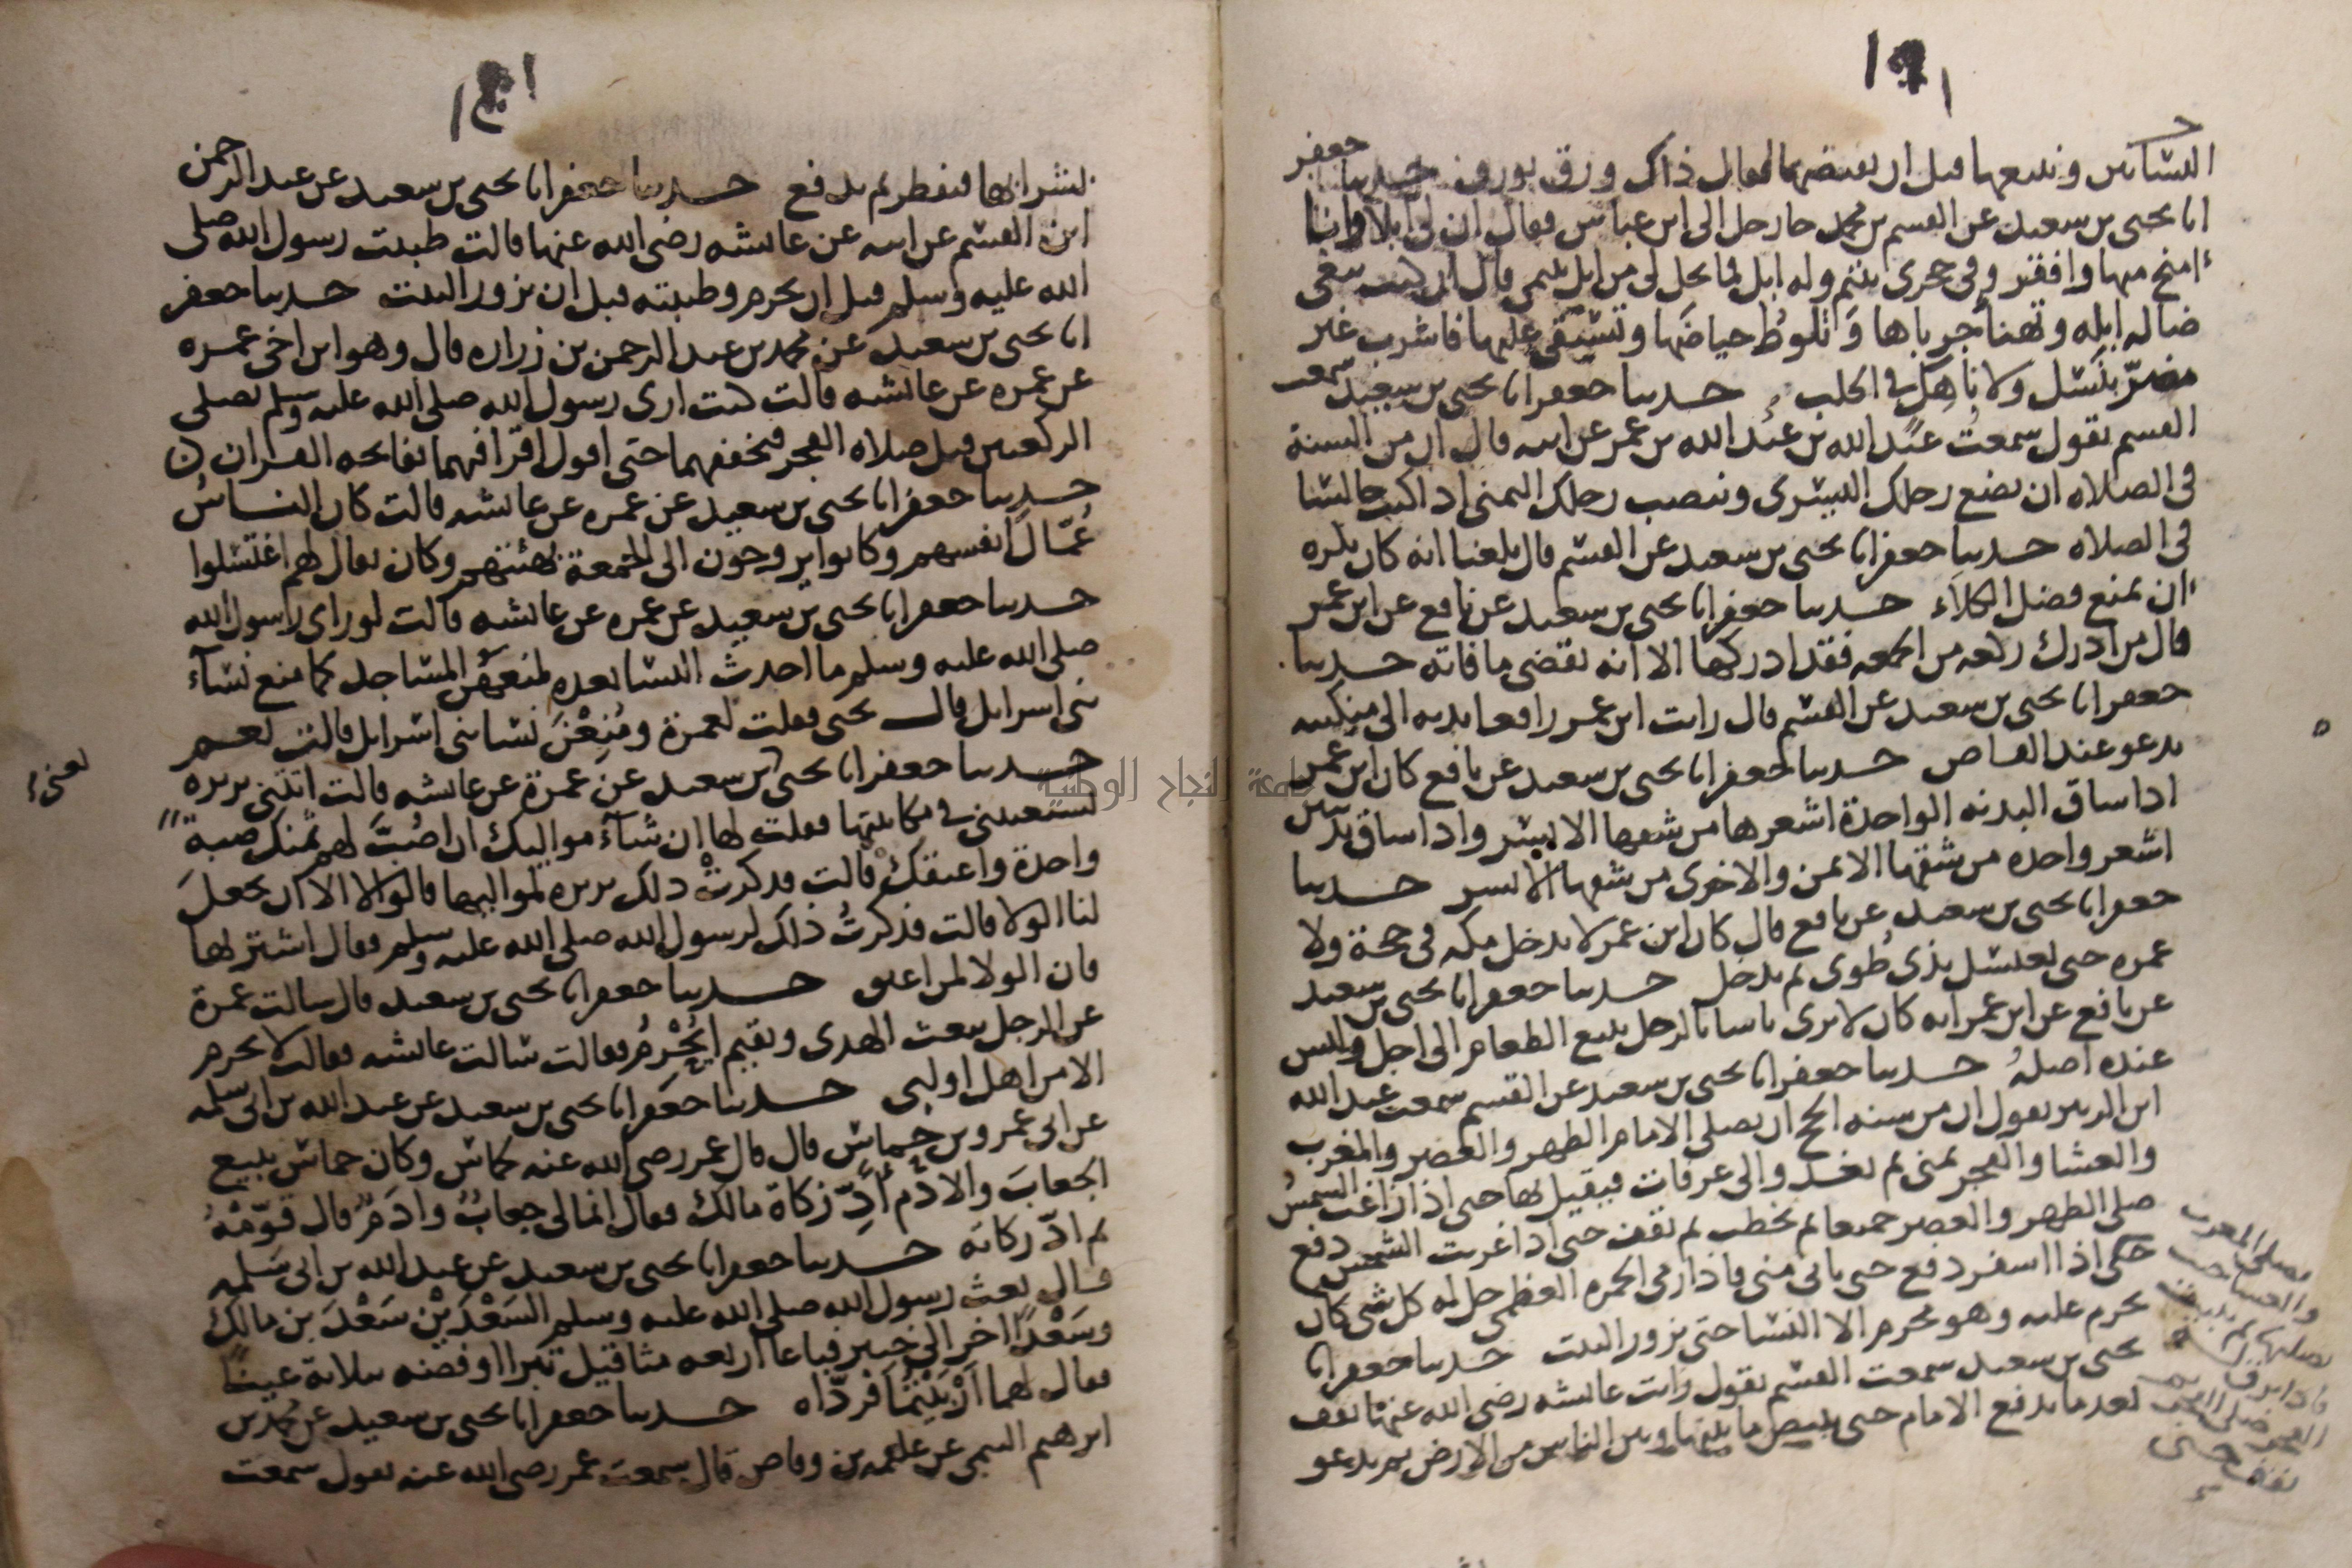 السبائب وتبيعها قبل ان تقبضها فقال ذاك ورق بورق حدثنا جعفر
انا يحيى بن سعيد عن القسم بن محمد جا رجل الى ابن عباس فقال ان لي ابلا وانا
امنح منها وافقر وفي حجري يتيم وله ابل فما يحل لي من ابل يتيمي قال ان كنت تبغي
ضالة ابله وتهنأ جرباها وتلوط حياضها وتسقي عليها فاشرب غير
مضر بنسل ولا ناهك في الحلب حدثنا جعفر انا يحيى بن سعيد سمعت
القسم يقول سمعت عبد الله بن عبد الله بن عمر عن ابيه قال ان من السنة
في الصلاه ان تضع رجلك اليسرى وتنصب رجلك اليمنى اذا كنت جالسا
في الصلاه حدثنا جعفر انا يحيى بن سعيد عن القسم قال بلغنا انه كان يكره
ان يمنع فضل الكلاء حدثنا جعفر انا يحيى بن سعيد عن نافع عن ابن عمر
قال من ادرك ركعه من الجمعه فقد ادركها الا انه يقضي ما فاته حدثنا
جعفر انا يحيى بن سعيد عن القسم قال رايت ابن عمر رافعا يديه الى منكبيه
يدعو عند القاص حدثنا جعفر انا يحيى بن سعيد عن نافع كان ابن عمر
اذا ساق البدنه الواحدة اشعرها من شقها الايسر واذا ساق بدنتين
اشعر واحده من شقها الايمن والاخرى من شقها الايسر حدثنا
جعفر انا يحيى بن سعيد عن نافع قال كان ابن عمر لا يدخل مكه في حجة ولا
عمره حتى يغتسل بذي طوى ثم يدخل حدثنا جعفر انا يحيى بن سعيد
عن نافع عن ابن عمر انه كان لا يرى باسا بالرجل يبيع الطعام الى اجل وليس
عنده اصله حدثنا جعفر انا يحيى بن سعيد عن القسم سمعت عبد الله
ابن الزبير يقول ان من سنه الحج ان يصلي الامام الظهر والعصر والمغرب
والعشا والفجر بمنى ثم يغدوا الى عرفات فيقيل بها حتى اذا زاغت الشمس
صلى الظهر والعصر جميعا ثم يخطب ثم يقف حتى اذا غربت الشمس دفع
حتى اذا اسفر دفع حتى ياتي منى فاذا رمى الجمره العظمى حل له كل شي كان
يحرم عليه وهو محرم الا النسا حتى يزور البيت حدثنا جعفر انا
يحيى بن سعيد سمعت القسم يقول رايت عائشه رضي الله عنها تقف
بعد ما يدفع الامام حتى يبيض ما بينها وبين الناس من الارض ثم تدعو
فصلى المغرب
والعشا حيث
الفجر فصلى الفجر ثم
يقف حتى
بشرابها فتفطر ثم تدفع حدثنا جعفر انا يحيى بن سعيد عن عبد الرحمن
ابن القسم عن ابيه عن عائشه رضي الله عنها قالت طيبت رسول الله صلى
الله عليه وسلم قبل ان يحرم وطيبته قبل ان يزور البيت حدثنا جعفر
انا يحيى بن سعيد عن محمد بن عبد الرحمن بن زراره قال وهو ابن اخي عمره
عن عمره عن عائشه قالت كنت ارى رسول الله صلى الله عليه وسلم يصلي
الركعتين قبل صلاه الفجر فيخففهما حتى اقول اقرا فيهما بفاتحه القران
حدثنا جعفر انا يحيى بن سعيد عن عمره عن عائشه قالت كان الناس
عمال انفسهم وكانوا يروحون الى الجمعة بهيئتهم وكان يقال لهم اغتسلوا
حدثنا جعفر انا يحيى بن سعيد عن عمره عن عائشه قالت لو راى رسول الله
صلى الله عليه وسلم ما احدث النسا بعده لمنعهن المساجد كما منع نساء
بني اسرايل قال يحيى فقلت لعمرة ومنعن نسا بني اسرايل قالت نعم
حدثنا جعفر انا يحيى بن سعيد عن عمرة عن عائشه قالت اتتني بريره
تستعينني في مكاتبتها فقلت لها ان شاء مواليك ان اصب لهم ثمنك صبة
يعني
واحدة واعتقك قالت فذكرت ذلك بريره لمواليها قالوا لا الا ان يجعل
لنا الولا قالت فذكرت ذلك لرسول الله صلى الله عليه وسلم فقال اشتريها
فان الولا لمن اعتق حدثنا جعفر انا يحيى بن سعيد قال سالت عمرة
عن الرجل يبعث الهدي ويقيم ايحرم فقالت سالت عائشه فقالت لا يحرم
الا من اهل او لبى حدثنا جعفر انا يحيى بن سعيد عن عبد الله بن ابي سلمه
عن ابي عمرو بن حماس قال قال عمر رضي الله عنه لحماس وكان حماس يبيع
الجعاب والادم اد زكاة مالك فقال انما لي جعاب وادم قال قومه
ثم اد زكاته حدثنا جعفر انا يحيى بن سعيد عن عبد الله بن ابي سلمه
قال بعث رسول الله صلى الله عليه وسلم السعدين سعد بن مالك
وسعدا اخر الى خيبر فباعا اربعه مثاقيل تبرا او فضه بثلاثة عينا
فقال لهما اربيتما فردّاه حدثنا جعفر انا يحيى بن سعيد عن محمد بن
ابرهيم التيمي عن علقمه بن وقاص قال سمعت عمر رضي الله عنه يقول سمعت
جامعة النجاح الوطنية